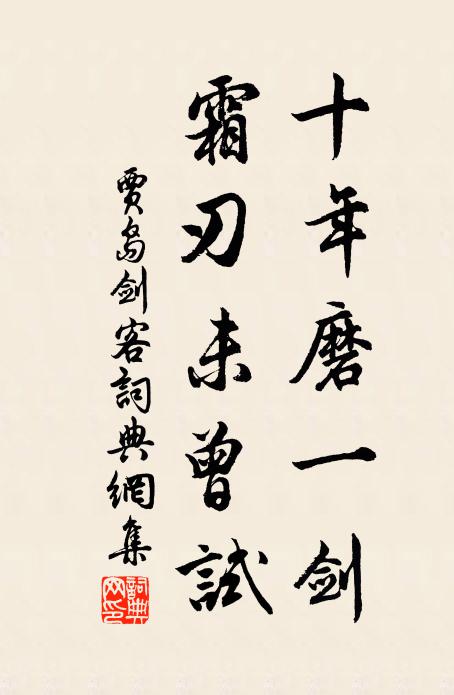 十年磨一剑
霜刃未曾試
賈島剑客詞典網集
詞典网印